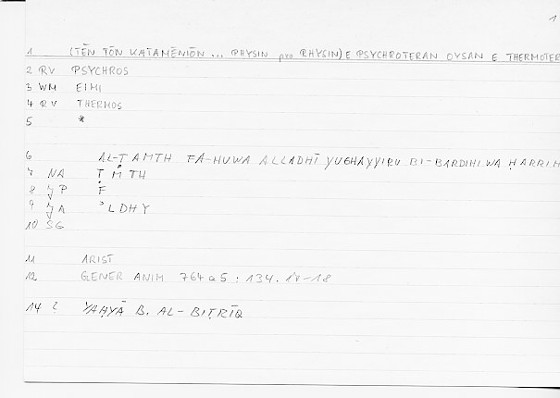 1
1 (TĒN TŌN KATAMĒNIŌN ... PHYSIN pro RHYSIN) E PSYCHROTERAN OYSAN E THERMOTER
2 RV PSYCHROS
3 WM EIMI
4 RV THERMOS
5 *
6 AL-ṬAMTH FA-HUWA ALLADHĪ YUGHAYYIRU BI-BARDIHI WA ḤARRIH
7 NA ṬMTH
8 P F
9 A ʾLDHY
10 SG
11 ARIST
12 GENER ANIM 764a5 : 134.18-18
14 2 YAḤYĀ B. AL-BIṬRĪQ